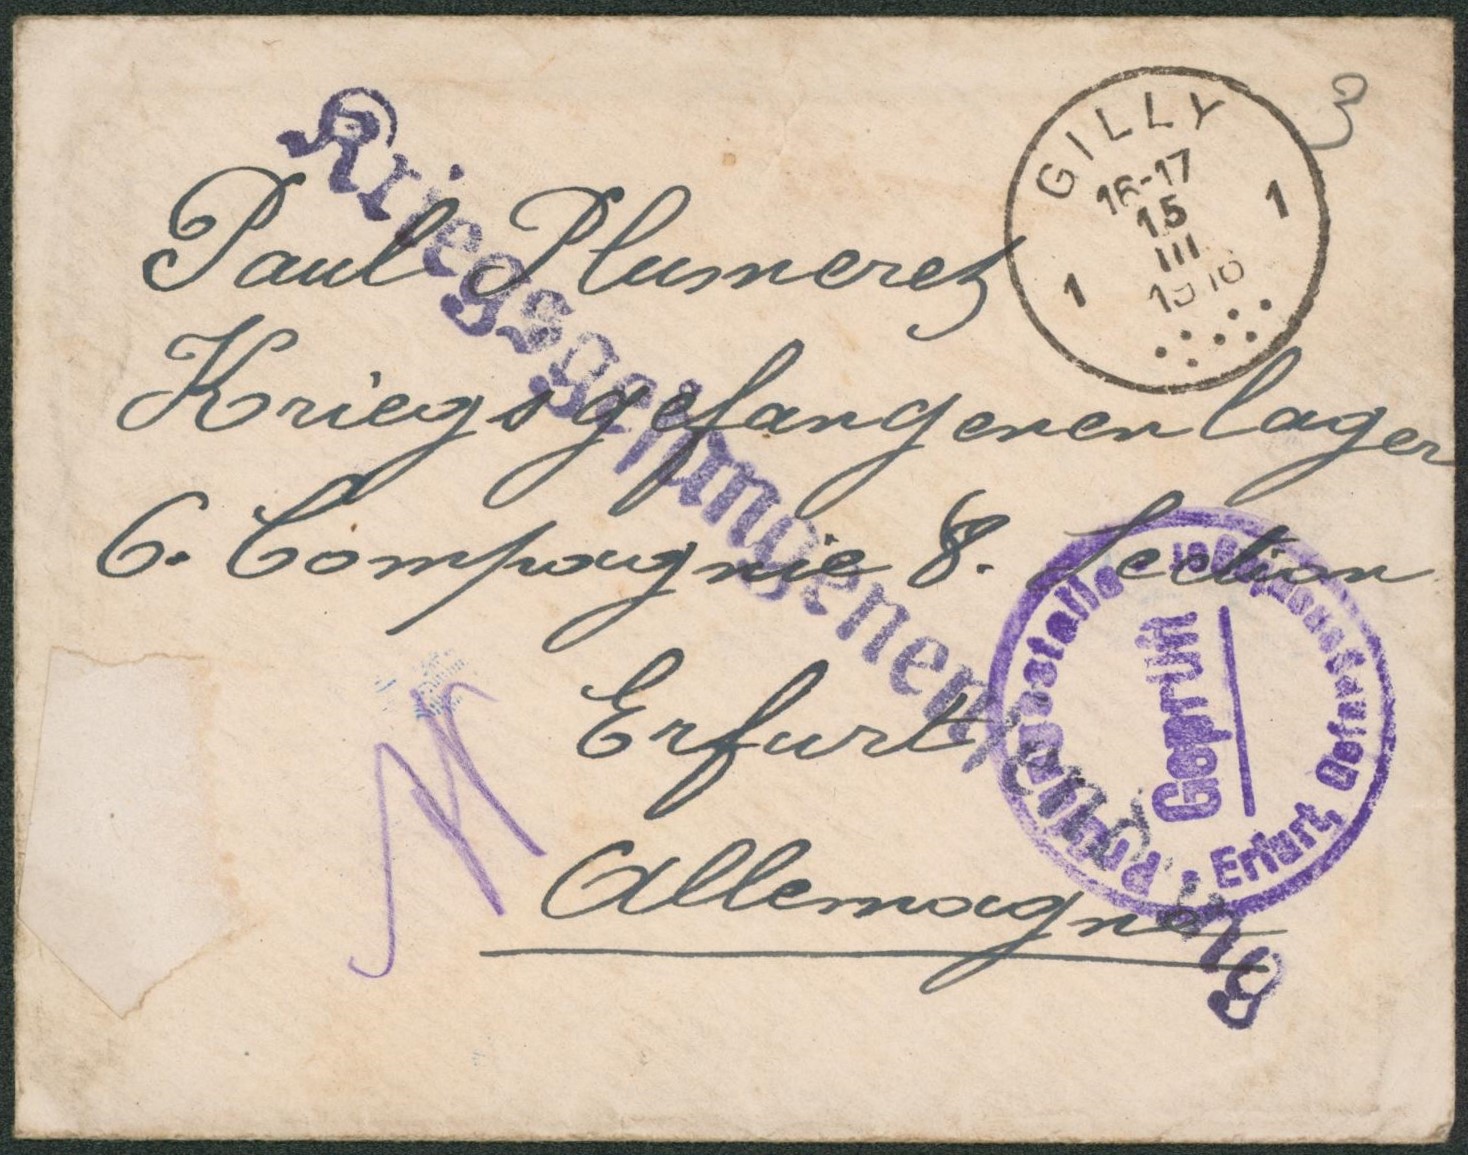 GILLY
16-17
15
III
1916
1 1
3
Kriegsgefangenensendung
Paul Plumerez
Kriegsgefangenenlager
6. Compagnie 8. Section
Erfurt
Allemagne
Geprüft
Erfurt,